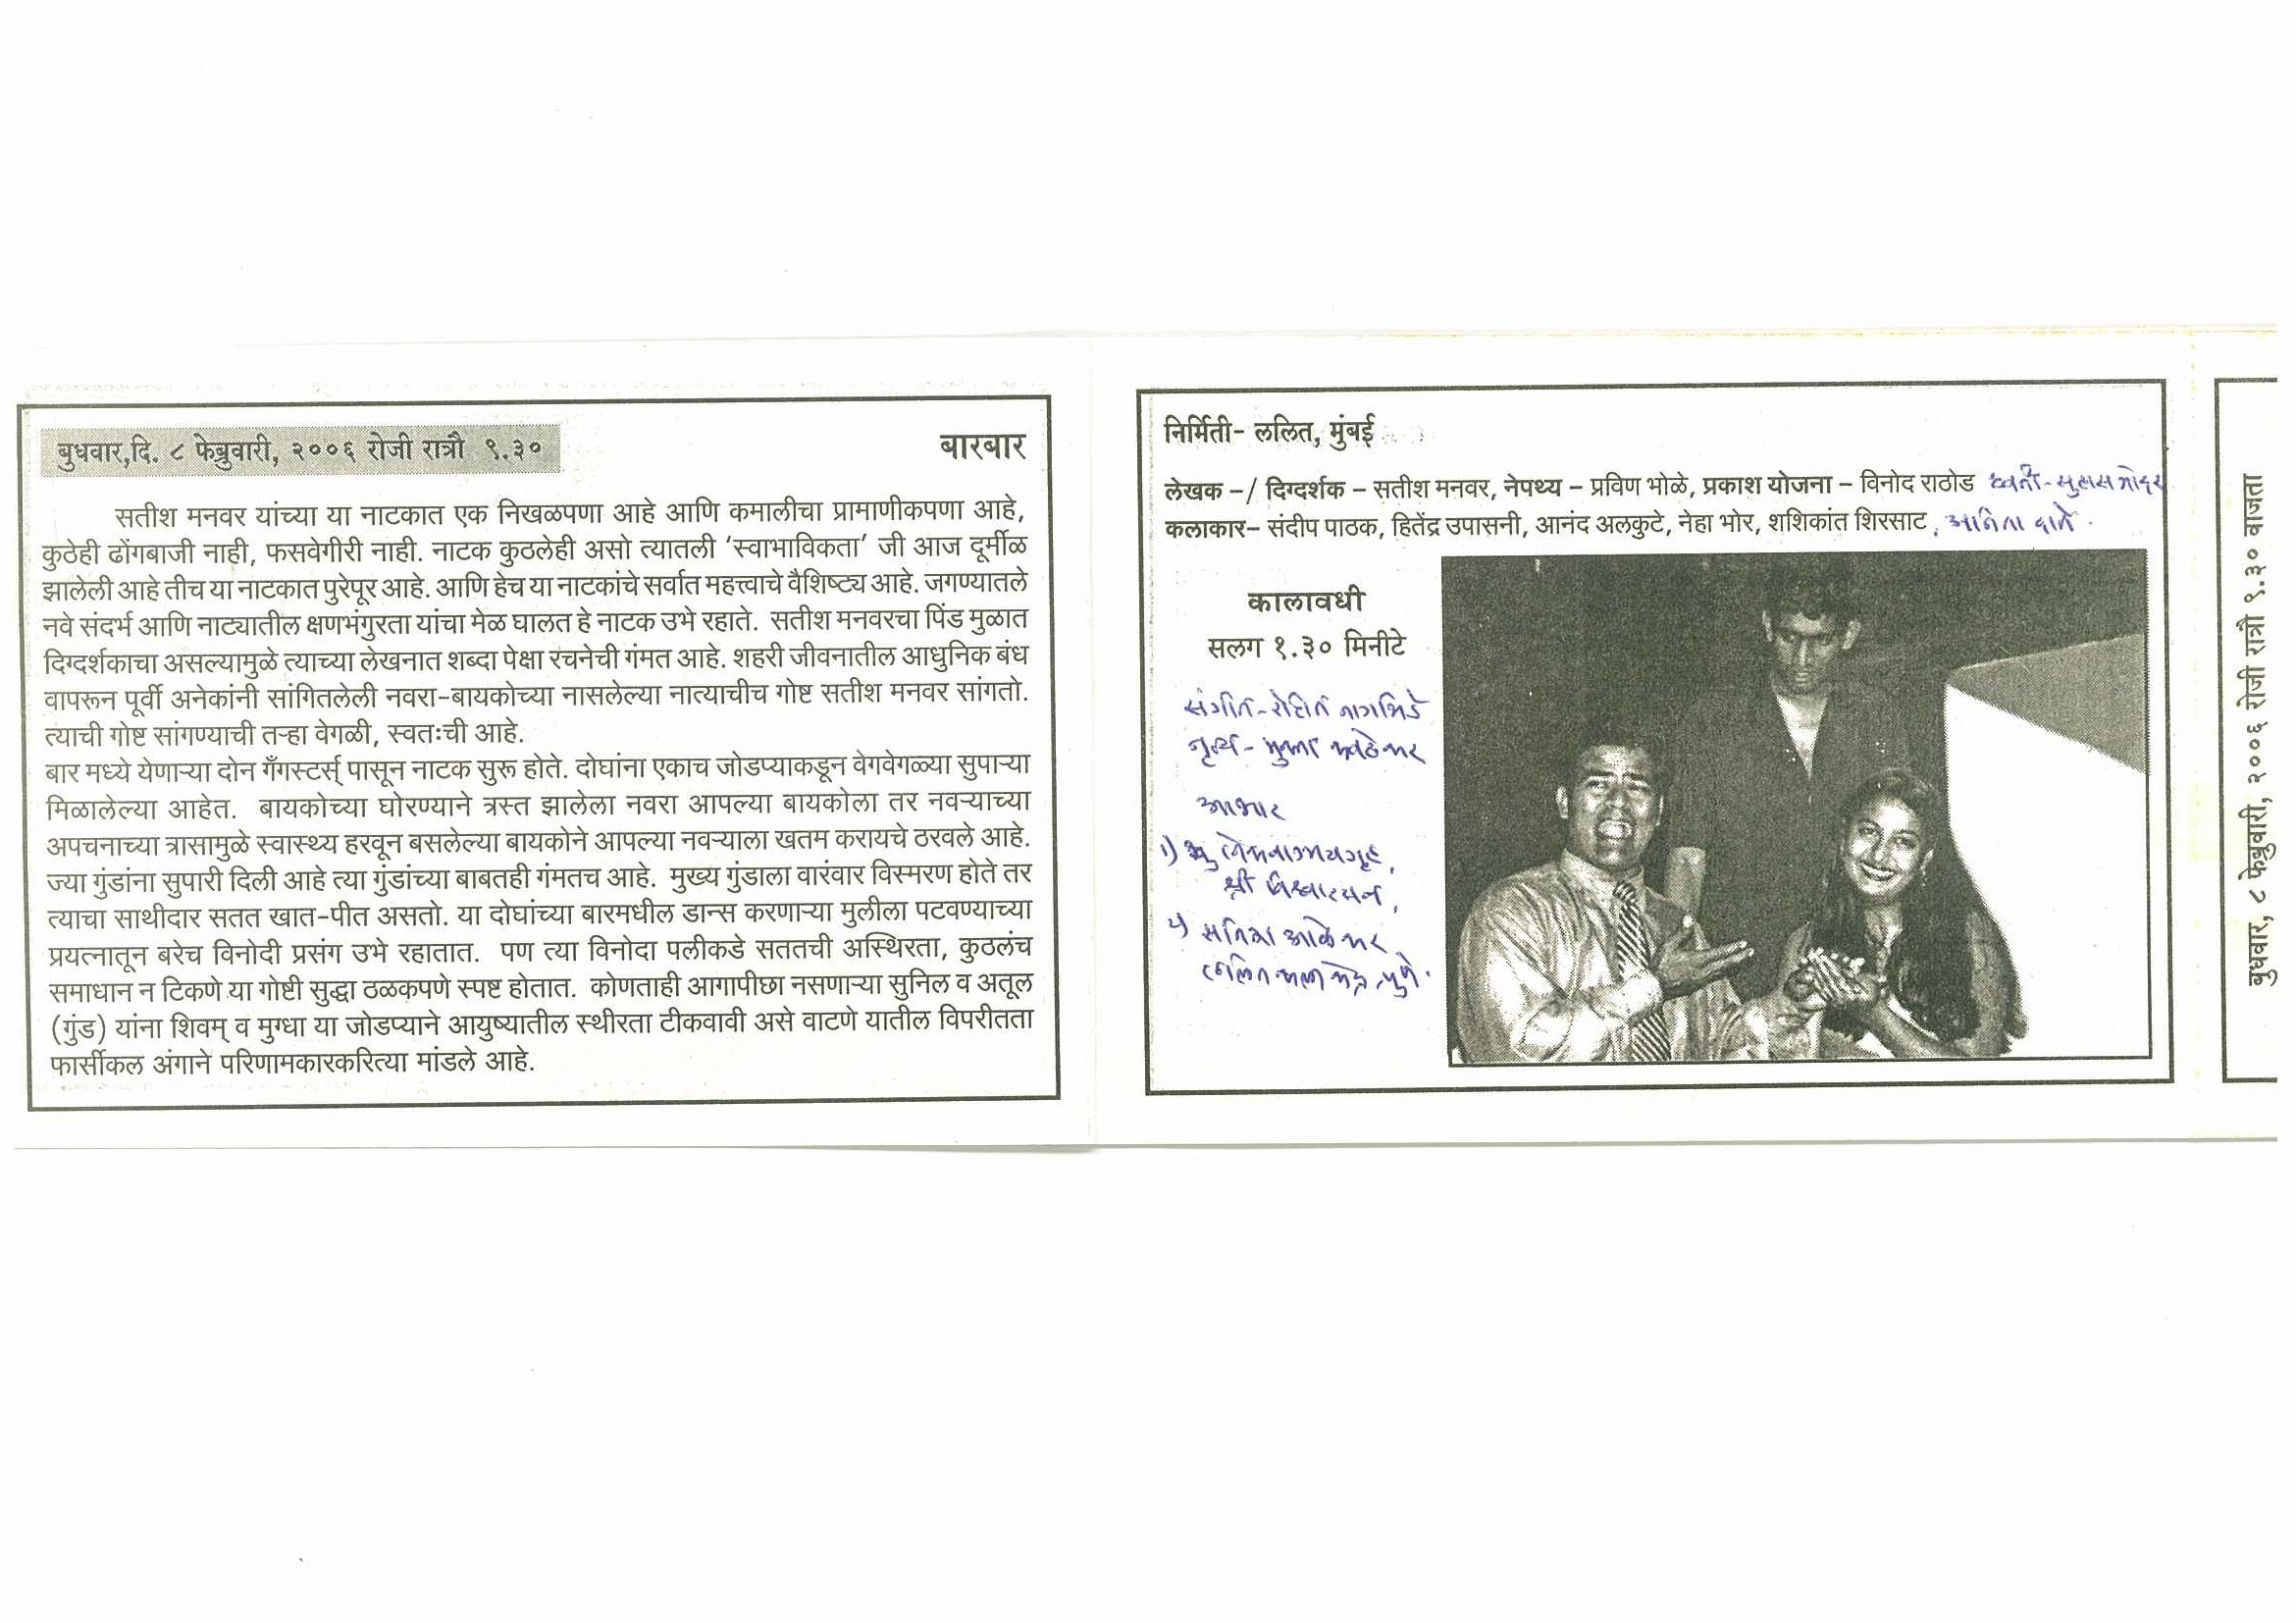 बुधवार,दि. ८ फेब्रुवारी, २००६ रोजी रात्रौ ९.३०
बारबार
सतीश मनवर यांच्या या नाटकात एक निखळपणा आहे आणि कमालीचा प्रामाणीकपणा आहे,
कुठेही ढोंगबाजी नाही, फसवेगीरी नाही. नाटक कुठलेही असो त्यातली ‘स्वाभाविकता’ जी आज दूर्मीळ
झालेली आहे तीच या नाटकात पुरेपूर आहे. आणि हेच या नाटकांचे सर्वात महत्त्वाचे वैशिष्ट्य आहे. जगण्यातले
नवे संदर्भ आणि नाट्यातील क्षणभंगुरता यांचा मेळ घालत हे नाटक उभे रहाते. सतीश मनवरचा पिंड मुळात
दिग्दर्शकाचा असल्यामुळे त्याच्या लेखनात शब्दा पेक्षा रचनेची गंमत आहे. शहरी जीवनातील आधुनिक बंध
वापरून पूर्वी अनेकांनी सांगितलेली नवरा-बायकोच्या नासलेल्या नात्याचीच गोष्ट सतीश मनवर सांगतो.
त्याची गोष्ट सांगण्याची तऱ्हा वेगळी, स्वतःची आहे.
बार मध्ये येणाऱ्या दोन गँगस्टर्स् पासून नाटक सुरू होते. दोघांना एकाच जोडप्याकडून वेगवेगळ्या सुपाऱ्या
मिळालेल्या आहेत. बायकोच्या घोरण्याने त्रस्त झालेला नवरा आपल्या बायकोला तर नवऱ्याच्या
अपचनाच्या त्रासामुळे स्वास्थ्य हरवून बसलेल्या बायकोने आपल्या नवऱ्याला खतम करायचे ठरवले आहे.
ज्या गुंडांना सुपारी दिली आहे त्या गुंडांच्या बाबतही गंमतच आहे. मुख्य गुंडाला वारंवार विस्मरण होते तर
त्याचा साथीदार सतत खात-पीत असतो. या दोघांच्या बारमधील डान्स करणाऱ्या मुलीला पटवण्याच्या
प्रयत्नातून बरेच विनोदी प्रसंग उभे रहातात. पण त्या विनोदा पलीकडे सततची अस्थिरता, कुठलंच
समाधान न टिकणे या गोष्टी सुद्धा ठळकपणे स्पष्ट होतात. कोणताही आगापीछा नसणाऱ्या सुनिल व अतूल
(गुंड) यांना शिवम् व मुग्धा या जोडप्याने आयुष्यातील स्थीरता टीकवावी असे वाटणे यातील विपरीतता
फार्सीकल अंगाने परिणामकारकरित्या मांडले आहे.
निर्मिती- ललित, मुंबई
लेखक -/ दिग्दर्शक - सतीश मनवर, नेपथ्य - प्रविण भोळे, प्रकाश योजना - विनोद राठोड
कलाकार- संदीप पाठक, हितेंद्र उपासनी, आनंद अलकुटे, नेहा भोर, शशिकांत शिरसाट, अनिता दाते.
कालावधी
सलग १.३० मिनीटे
संगीत-रोहित नागभिडे
नृत्य-
आभार
१)
श्री
२)
बुधवार, ८ फेब्रुवारी, २००६ रोजी रात्रौ ९.३० वाजता